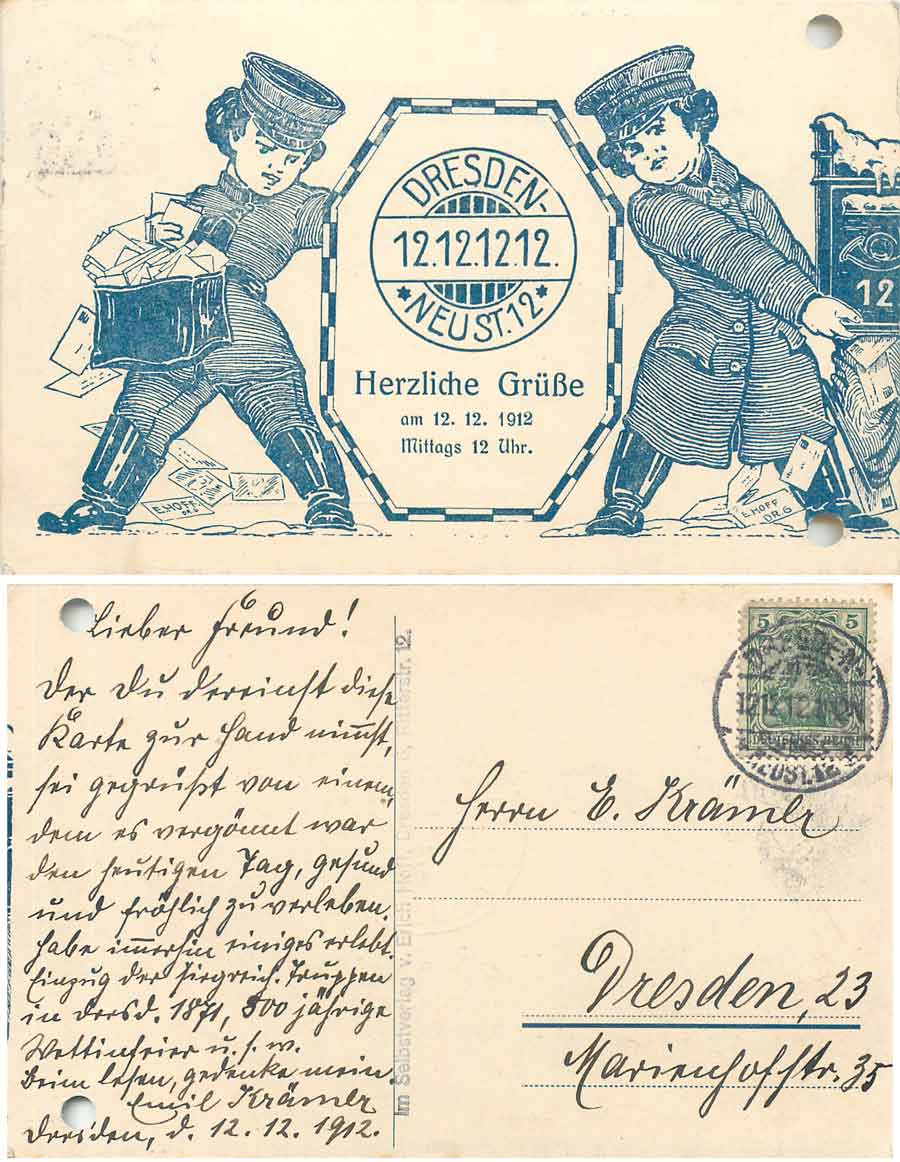 DRESDEN-
12.12.12 12.
* NEUST. 12 *
12
Herzliche Grüße
am 12. 12. 1912
Mittags 12 Uhr.
E. HOFF
DR.
E. HOFF
DR. G
Lieber Freund!
Der Du dereinst diese
Karte zur Hand nimmst,
sei gegrüßt von einem,
dem es vergönnt war
den heutigen Tag, gesund
und fröhlich zu verleben.
habe immerhin einiges erlebt.
Einzug der siegreich. Truppen
in Dresd. 1871, 800 jährige
Wettinfeier u. s. w.
Beim lesen, gedenke mein
Emil Krämer
Dresden, d. 12. 12. 1912.
Im Selbstverlag v. Erich Dresden 12.
5 5
DEUTSCHES REICH
12.12.12.
NEUST. 12
Herrn E. Krämer
Dresden, 23
Marienhofstr. 35